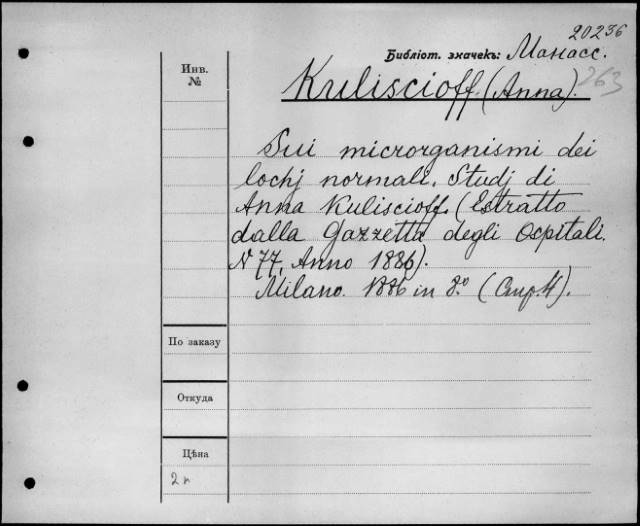 20236
Библіот. значекъ: Манасс.
Инв.
№
Kuliscioff. (Anna). 263
Sui microrganismi dei
lochj normali. Studj di
Anna Kuliscioff. (Estratto
dalla Gazzetta degli Ospitali.
N 77, Anno 1886).
Milano. 1886 in 8.° (Стр. 4).
По заказу
Откуда
Цѣна
2 к